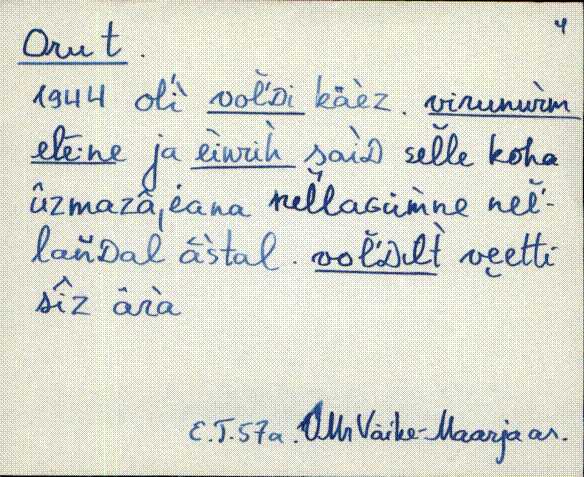 4
Orut.
1944 oĺì vol̆'Di kä̀èz. virunurm̀
elè·ne ja èiwrih̀ sàìD sel̆le koha
ûzmazâ, èana nel̆lacüm̀ne nel̆'-
lan̆Dal âs̀tal. vol̆'Dilt̀ veetti
sîz ârà
E.T. 57a. VMr Väike-Maarja as.